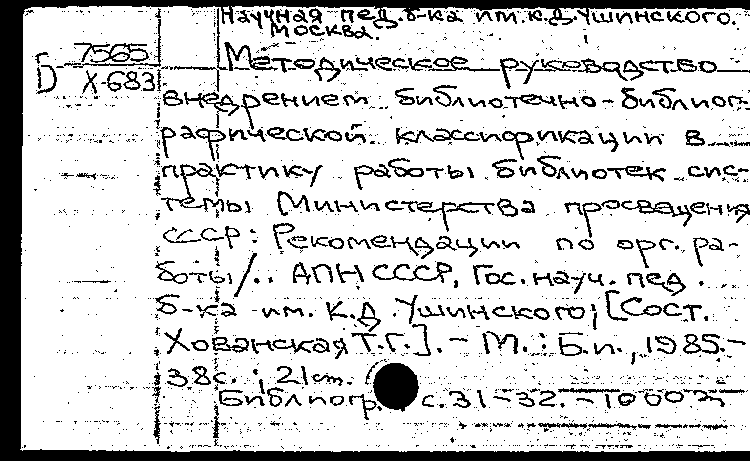 Научная пед. б-ка им. К.Д. Ушинского.
Москва.
Б 7565
Х-683
Методическое руководство
внедрением библиотечно-библиог-
рафической классификации в
практику работы библиотек сис-
темы Министерства просвещения
СССР: Рекомендации по орг. ра-
боты/.. АПН СССР, Гос. науч. пед.
б-ка им. К.Д. Ушинского; [Сост.
Хованская Т.Г.]. - М.: Б.и., 1985.-
38с.; 21cm.
Библиогр. с. 31-32. - 1000э